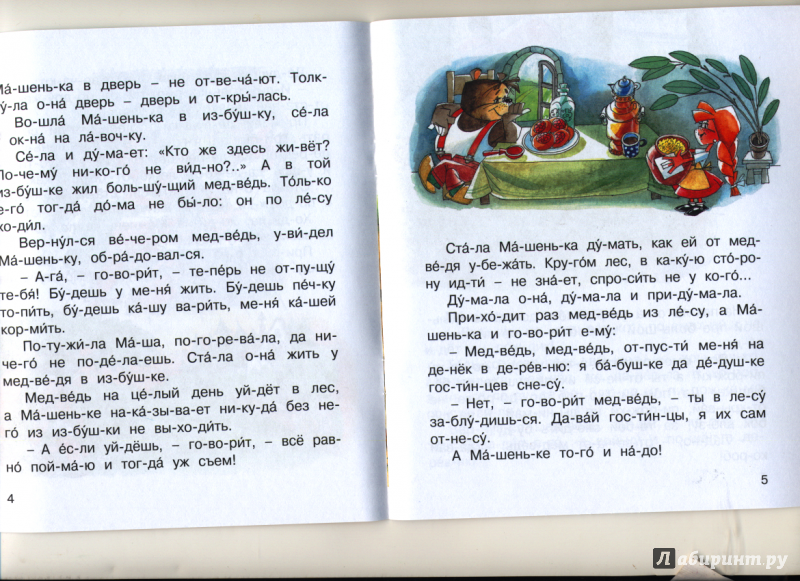 Ма́-шень-ка в дверь – не от-ве-ча́-ют. Толк-
у́-ла о-на́ дверь – дверь и от-кры́-лась.
Во-шла́ Ма́-шень-ка в из-бу́ш-ку, се́-ла
ок-на́ на ла́-воч-ку.
Се́-ла и ду́-ма-ет: «Кто же здесь жи-вёт?
По-че-му́ ни-ко-го́ не ви́д-но?..» А в той
из-бу́ш-ке жил боль-шу́-щий мед-ве́дь. То́ль-ко
е-го́ тог-да́ до́-ма не бы́-ло: он по ле́-су
хо-ди́л.
Вер-ну́л-ся ве́-че-ром мед-ве́дь, у-ви́-дел
Ма́-шень-ку, об-ра́-до-вал-ся.
– А-га́, – го-во-ри́т, – те-пе́рь не от-пу-щу́
те-бя́! Бу́-дешь у ме-ня́ жить. Бу́-дешь пе́ч-ку
то-пи́ть, бу́-дешь ка́-шу ва-ри́ть, ме-ня́ ка́-шей
кор-ми́ть.
По-ту-жи́-ла Ма́-ша, по-го-ре-ва́-ла, да ни-
че-го́ не по-де́-ла-ешь. Ста́-ла о-на́ жить у
мед-ве́-дя в из-бу́ш-ке.
Мед-ве́дь на це́-лый день уй-дёт в лес,
а Ма́-шень-ке на-ка́-зы-ва-ет ни-ку-да́ без не-
го́ из из-бу́ш-ки не вы-хо-ди́ть.
– А е́с-ли уй-дёшь, – го-во-ри́т, – всё рав-
но́ пой-ма́-ю и тог-да́ уж съем!
4
Ста́-ла Ма́-шень-ка ду́-мать, как ей от мед-
ве́-дя у-бе-жа́ть. Кру-го́м лес, в ка-ку́-ю сто́-ро-
ну ид-ти́ – не зна́-ет, спро-си́ть не у ко-го́...
Ду́-ма-ла о-на́, ду́-ма-ла и при-ду́-ма-ла.
При-хо́-дит раз мед-ве́дь из ле́-су, а Ма́-
шень-ка и го-во-ри́т е-му́:
– Мед-ве́дь, мед-ве́дь, от-пус-ти́ ме-ня́ на
де-нёк в де-ре́в-ню: я ба́-буш-ке да де́-душ-ке
гос-ти́н-цев сне-су́.
– Нет, – го-во-ри́т мед-ве́дь, – ты в ле-су́
за-блу́-дишь-ся. Да-ва́й гос-ти́н-цы, я их сам
от-не-су́.
А Ма́-шень-ке то-го́ и на́-до!
5
Лабиринт.ру